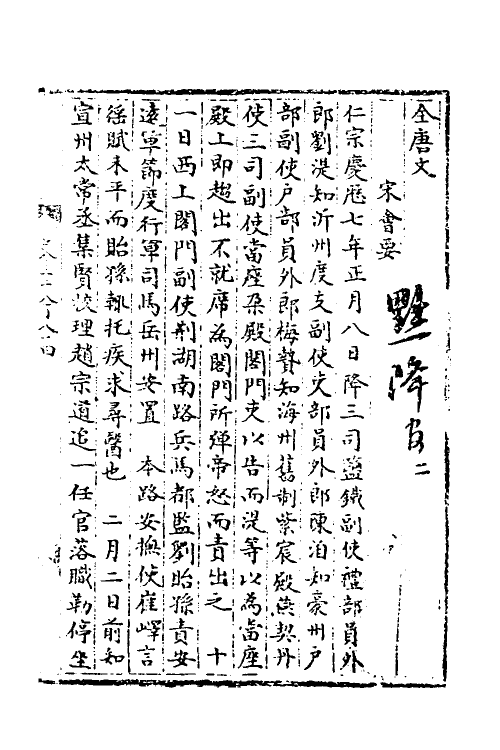 全唐文
宋會要
黜降官二
仁宗慶厯七年正月八日降三司鹽鐵副使禮部員外
郎劉湜知沂州度支副使吏部員外郎陳洎知豪州戶
部副使戶部員外郎梅摯知海州舊制紫宸殿燕契丹
使三司副使當座朶殿閤門吏以告而湜等以為當座
殿上即趨出不就席為閤門所彈帝怒而責出之 十
一日西上閤門副使荆湖南路兵馬都監劉貽孫責安
逺軍節度行軍司馬岳州安置 本路安撫使崔嶧言
徭賊未平而貽孫輒托疾求尋醫也 二月二日前知
宣州太常丞集賢校理趙宗道追一任官落職勒停坐